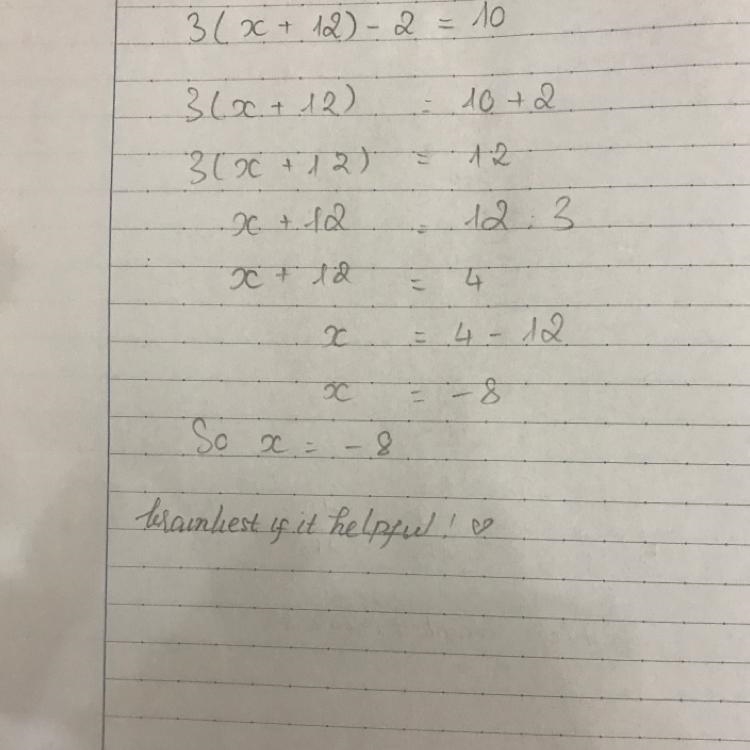 3(x + 12) - 2 = 10
3(x + 12) = 10 + 2
3(x + 12) = 12
x + 12 = 12 : 3
x + 12 = 4
x = 4 - 12
x = -8
So x = -8
brainliest if it helpful! ♡